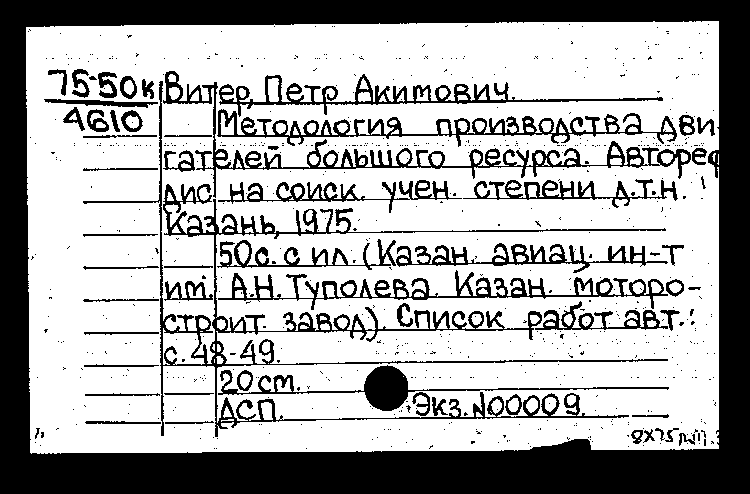 75-50к Витер, Петр Акимович.
4610 Методология производства дви-
гателей большого ресурса. Автореф
дис. на соиск. учен. степени д.т.н.
Казань, 1975.
50с. с ил. (Казан. авиац. ин-т
им. А.Н. Туполева. Казан. моторо-
строит. завод). Список работ авт.:
с. 48-49.
20 см.
ДСП. Экз. №00009.